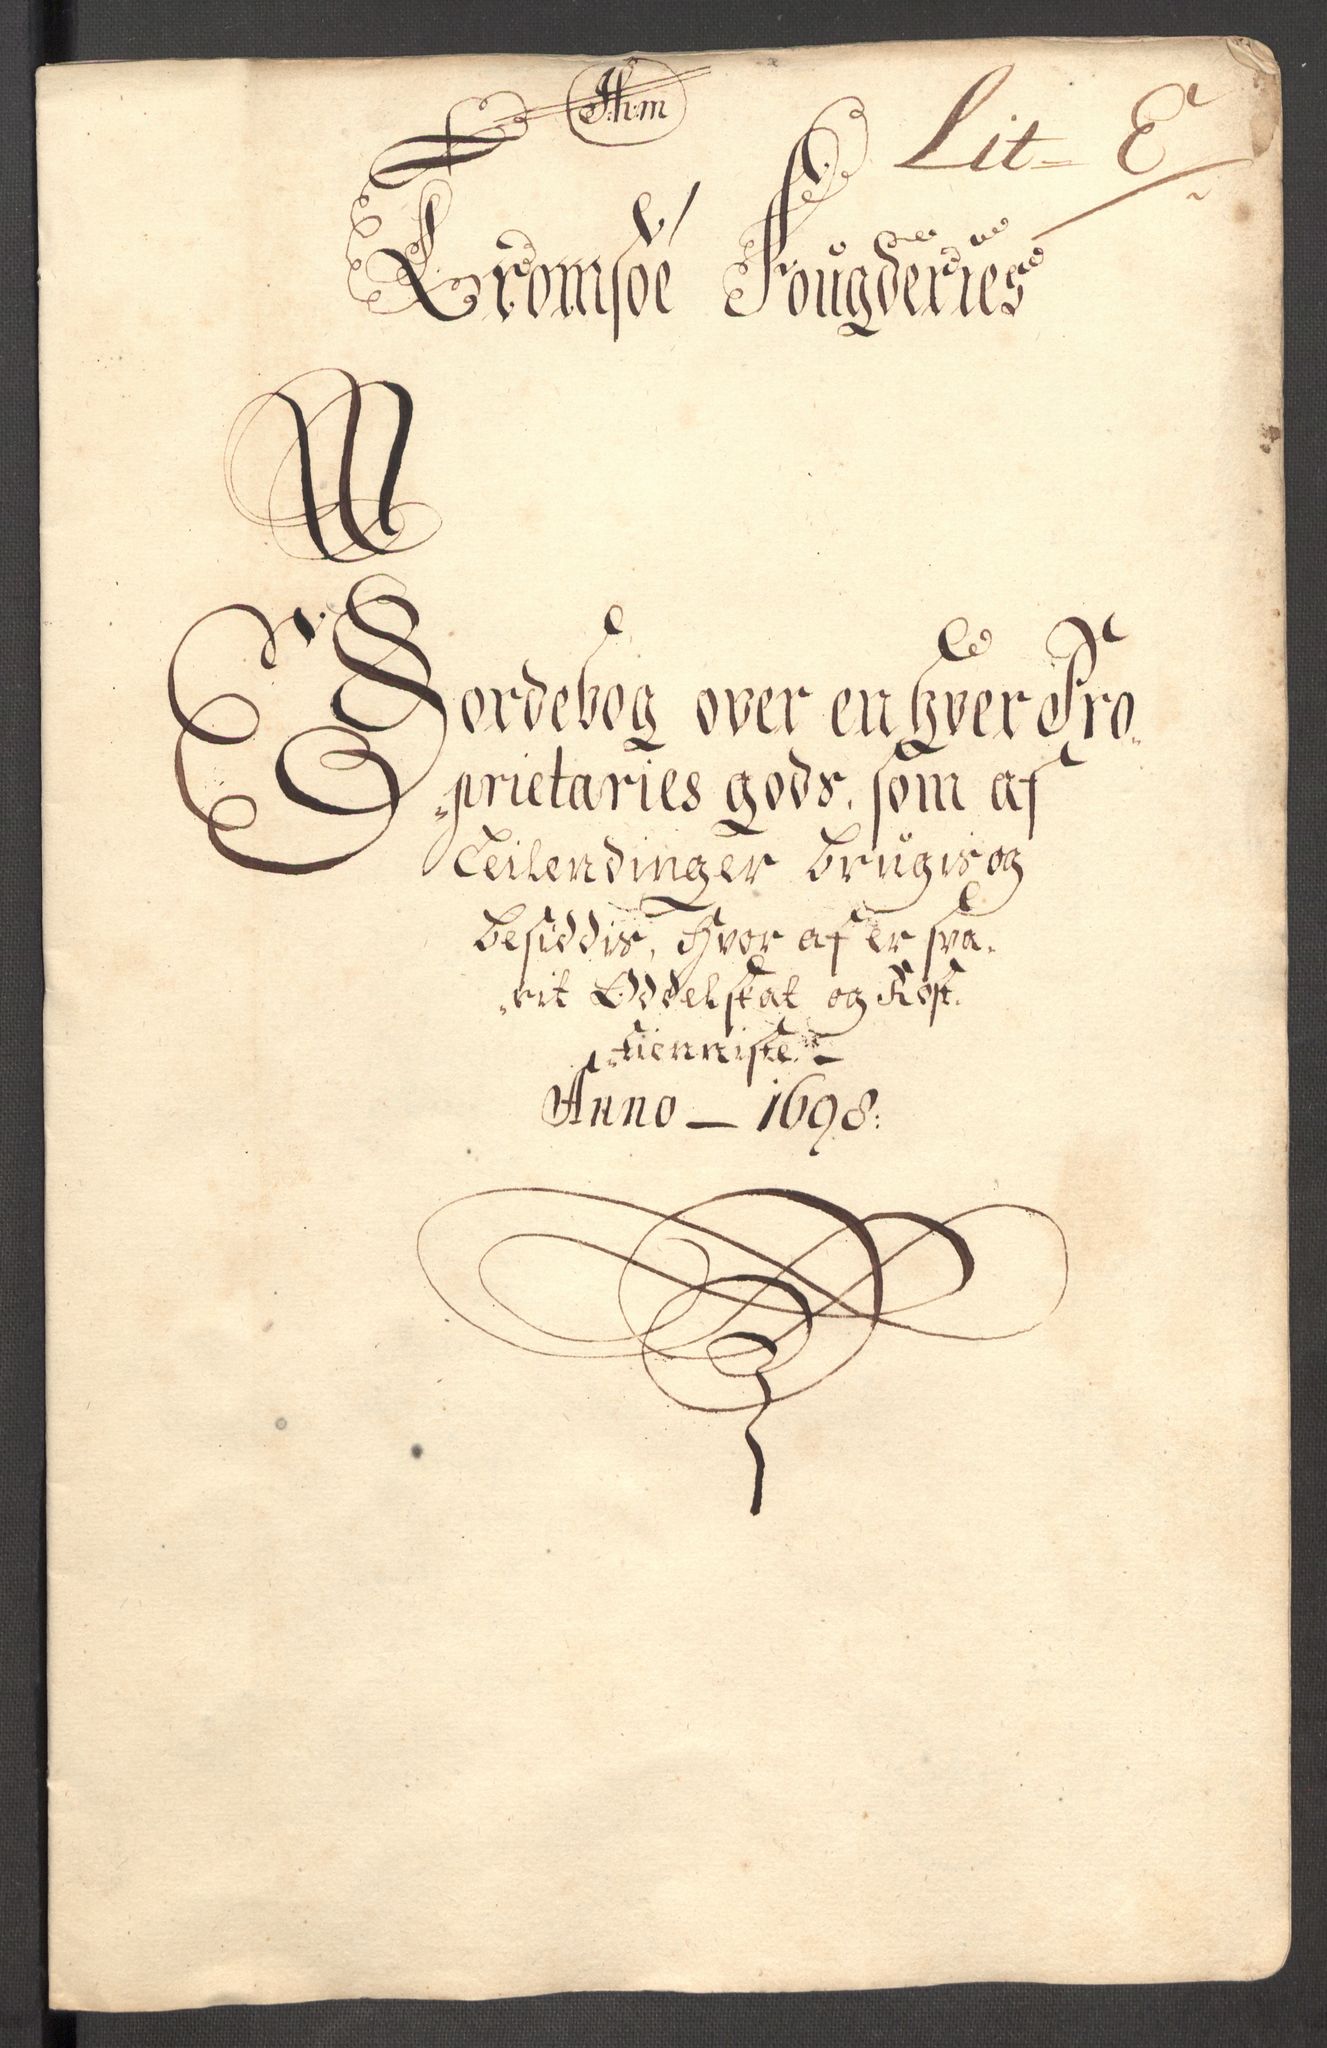 Lit- E
Tromsøe Fougderies
Jordebog over en hver Pro-
-prietaries gods, som af
Leilendinger brugis og
besiddis, hvor af er sva-
-rit Oddelskat og Rost-
-tienniste -
Anno - 1698: